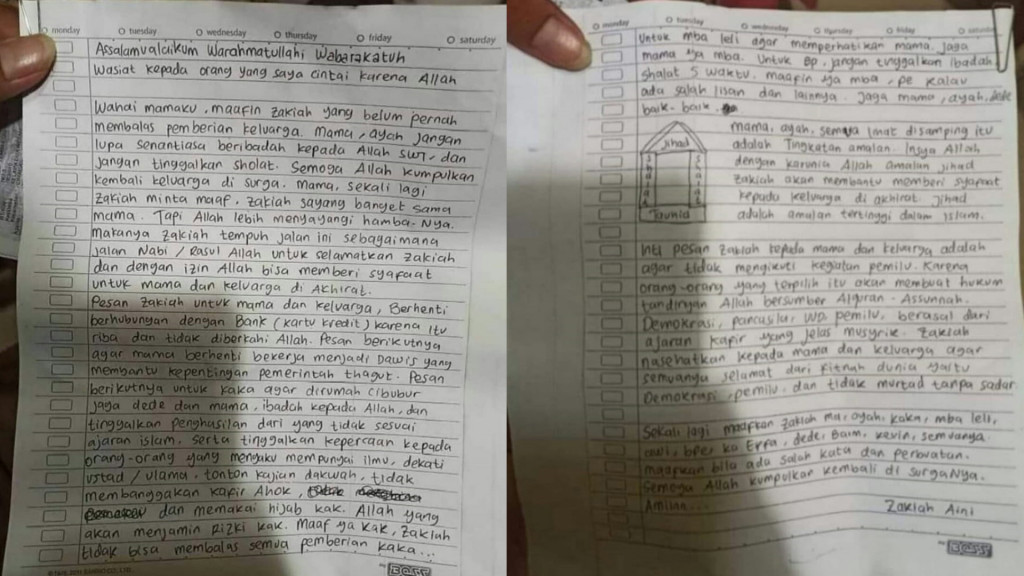 monday tuesday wednesday thursday friday saturday
Assalamualaikum Warahmatullahi Wabarakatuh
Wasiat kepada orang yang saya cintai karena Allah
Wahai mamaku, maafin zakiah yang belum pernah
membalas pemberian keluarga. Mama, ayah jangan
lupa senantiasa beribadah kepada Allah swt, dan
jangan tinggalkan sholat. Semoga Allah kumpulkan
kembali keluarga di surga. Mama, sekali lagi
zakiah minta maaf. zakiah sayang banget sama
mama. Tapi Allah lebih menyayangi hamba-Nya.
makanya zakiah tempuh jalan ini sebagaimana
jalan Nabi / Rasul Allah untuk selamatkan zakiah
dan dengan izin Allah bisa memberi syafaat
untuk mama dan keluarga di Akhirat.
Pesan zakiah untuk mama dan keluarga, Berhenti
berhubungan dengan Bank (kartu kredit) karena itu
riba dan tidak diberkahi Allah. Pesan berikutnya
agar mama berhenti bekerja menjadi Dawis yang
membantu kepentingan pemerintah thagut. Pesan
berikutnya untuk kaka agar dirumah cibubur
jaga dede dan mama, ibadah kepada Allah, dan
tinggalkan penghasilan dari yang tidak sesuai
ajaran islam. Serta tinggalkan kepercaan kepada
orang-orang yang mengaku mempunyai Ilmu, dekati
ustad / ulama, tonton kajian dakwah, tidak
membanggakan kafir Ahok,
dan memakai hijab kak. Allah yang
akan menjamin Rizki kak. Maaf ya kak, zakiah
tidak bisa membalas semua pemberian kaka...
BOSS
monday tuesday wednesday thursday friday
Untuk mba leli agar memperhatikan mama. Jaga
mama ya mba. Untuk BP, jangan tinggalkan ibadah
shalat 5 waktu. maafin ya mba, pe kalau
ada salah lisan dan lainnya. Jaga mama, ayah, dede
baik-baik.
Jihad
Tauhid
mama, ayah, semua lihat disamping itu
adalah Tingkatan amalan. Insya Allah
dengan karunia Allah amalan jihad
zakiah akan membantu memberi syafaat
kepada keluarga di akhirat. Jihad
adalah amalan tertinggi dalam islam.
Inti pesan zakiah kepada mama dan keluarga adalah
agar tidak mengikuti kegiatan pemilu. Karena
orang-orang yang terpilih itu akan membuat hukum
tandingan Allah bersumber Alquran - Assunnah.
Demokrasi, pancasila, UUD, pemilu, berasal dari
ajaran kafir yang jelas musyrik. Zakiah
nasehatkan kepada mama dan keluarga agar
semuanya selamat dari fitnah dunia yaitu
Demokrasi, pemilu. dan tidak murtad tanpa sadar
Sekali lagi maafkan zakiah ma, ayah, kaka, mba leli,
Erfa, dede, Baim, kevin, semuanya.
maafkan bila ada salah kata dan perbuatan.
Semoga Allah kumpulkan kembali di surgaNya.
Amiinn...
Zakiah Aini
BOSS